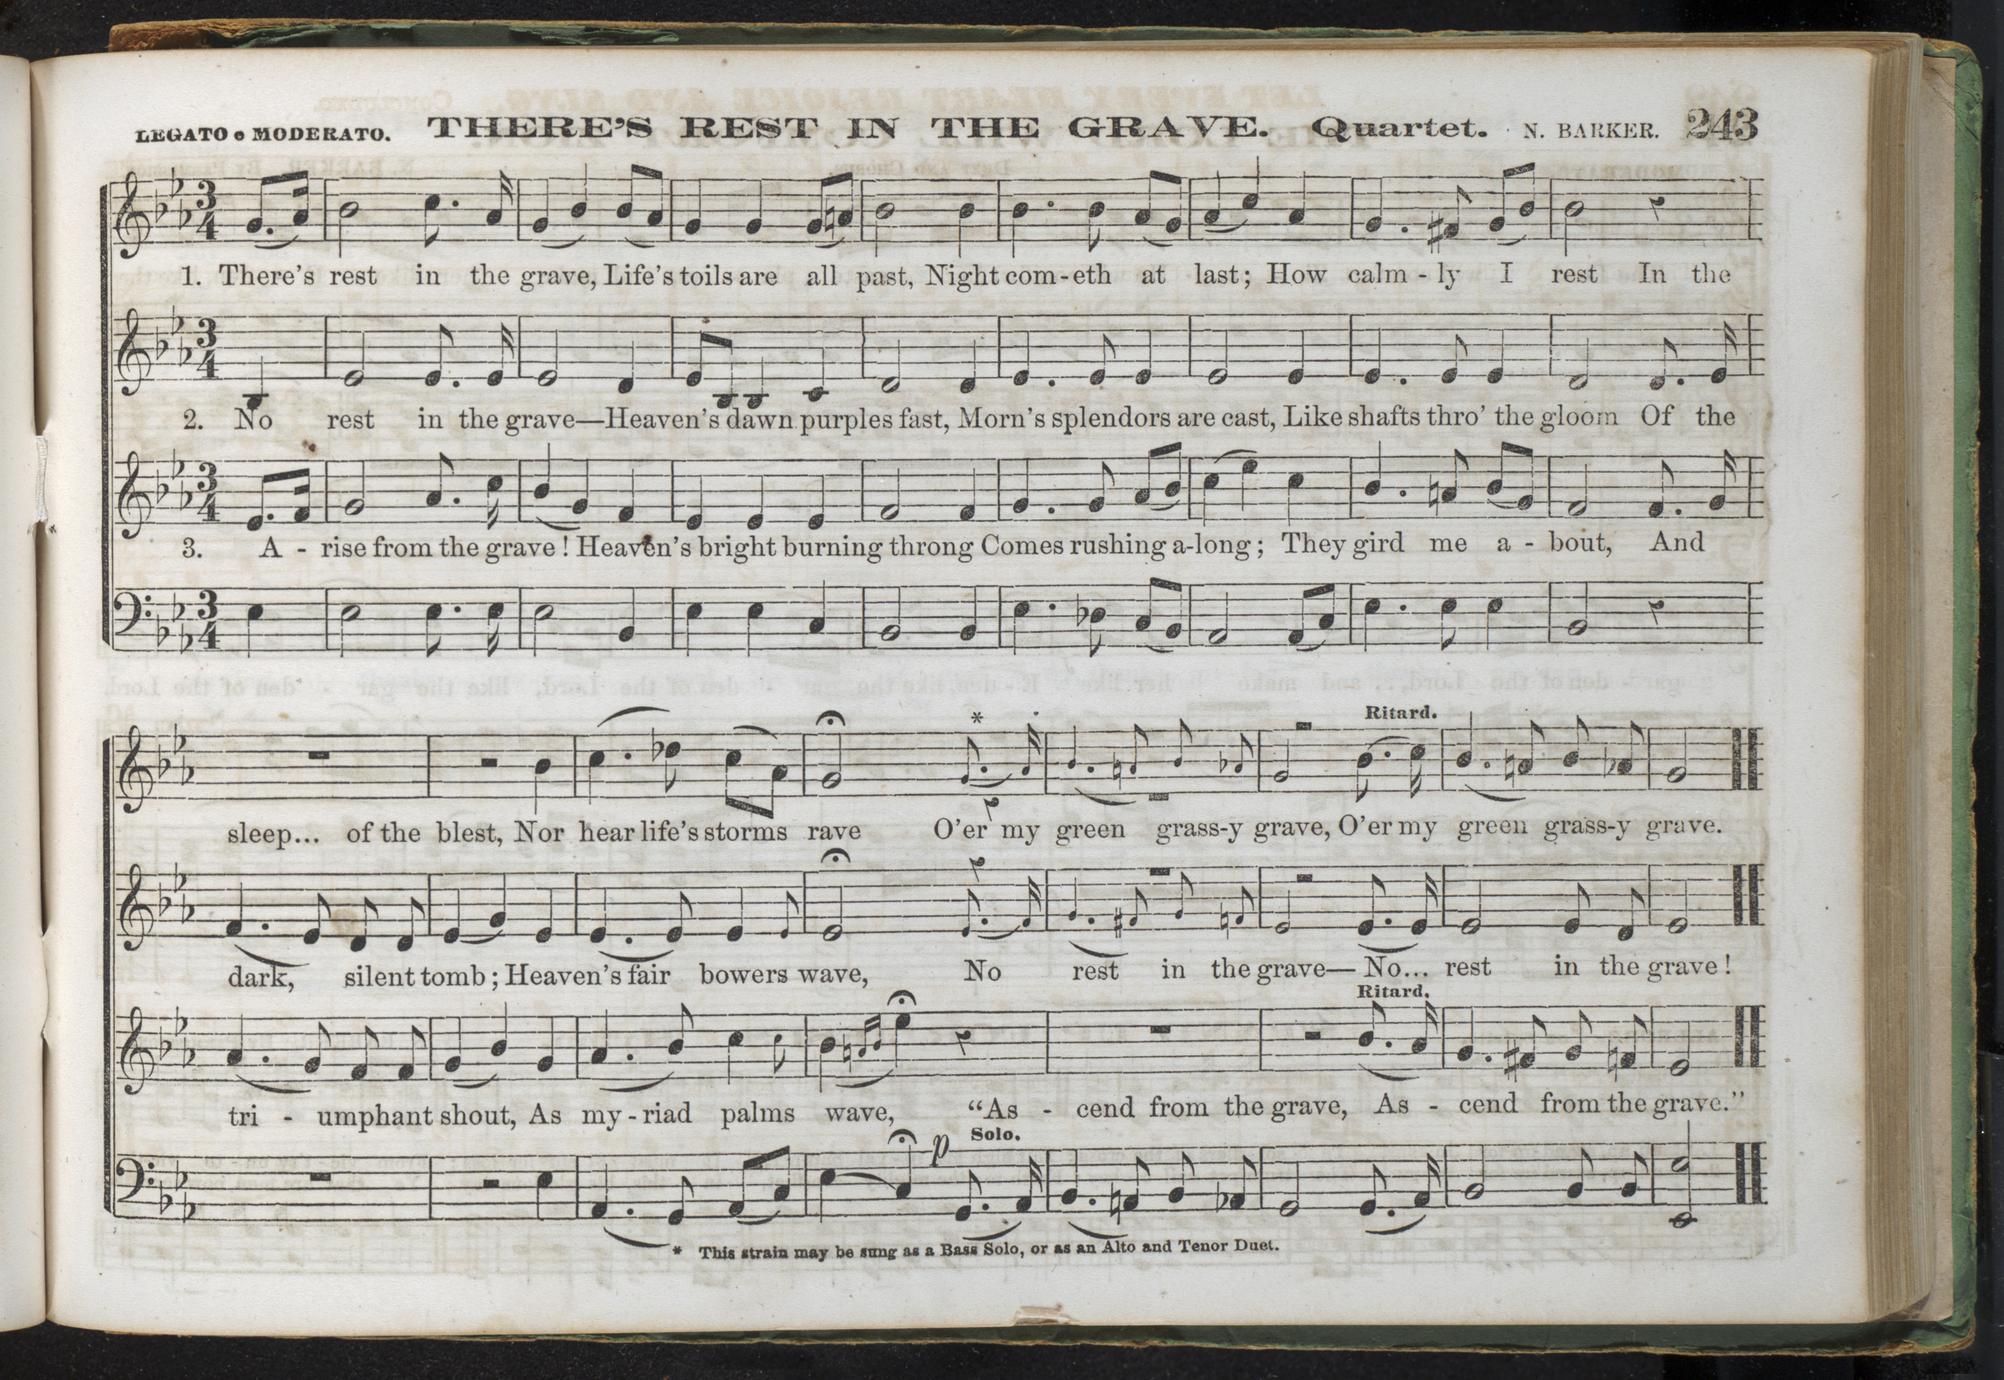 LEGATO e MODERATO. THERE'S REST IN THE GRAVE. Quartet. N. BARKER. 243
1. There's rest in the grave, Life's toils are all past, Night com-eth at last; How calm-ly I rest In the
2. No rest in the grave—Heaven's dawn purples fast, Morn's splendors are cast, Like shafts thro' the gloom Of the
3. A-rise from the grave! Heaven's bright burning throng Comes rushing a-long; They gird me a-bout, And
* Ritard.
sleep... of the blest, Nor hear life's storms rave O'er my green grass-y grave, O'er my green grass-y grave.
dark, silent tomb; Heaven's fair bowers wave, No rest in the grave—No... rest in the grave!
Ritard.
tri-umphant shout, As my-riad palms wave, "As-cend from the grave, As-cend from the grave."
p Solo.
* This strain may be sung as a Bass Solo, or as an Alto and Tenor Duet.